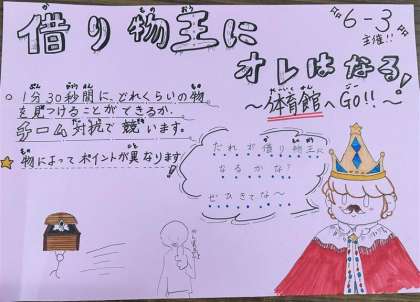 借り物王に
オレはなる!
6-3
主催!!
~体育館へGO!!~
○1分30秒間に、どれくらいの物
を見つけることができるか、
チーム対抗で競います。
★物によってポイントが異なります!
だれが借り物王に
なるかな?
ぜひきてな~